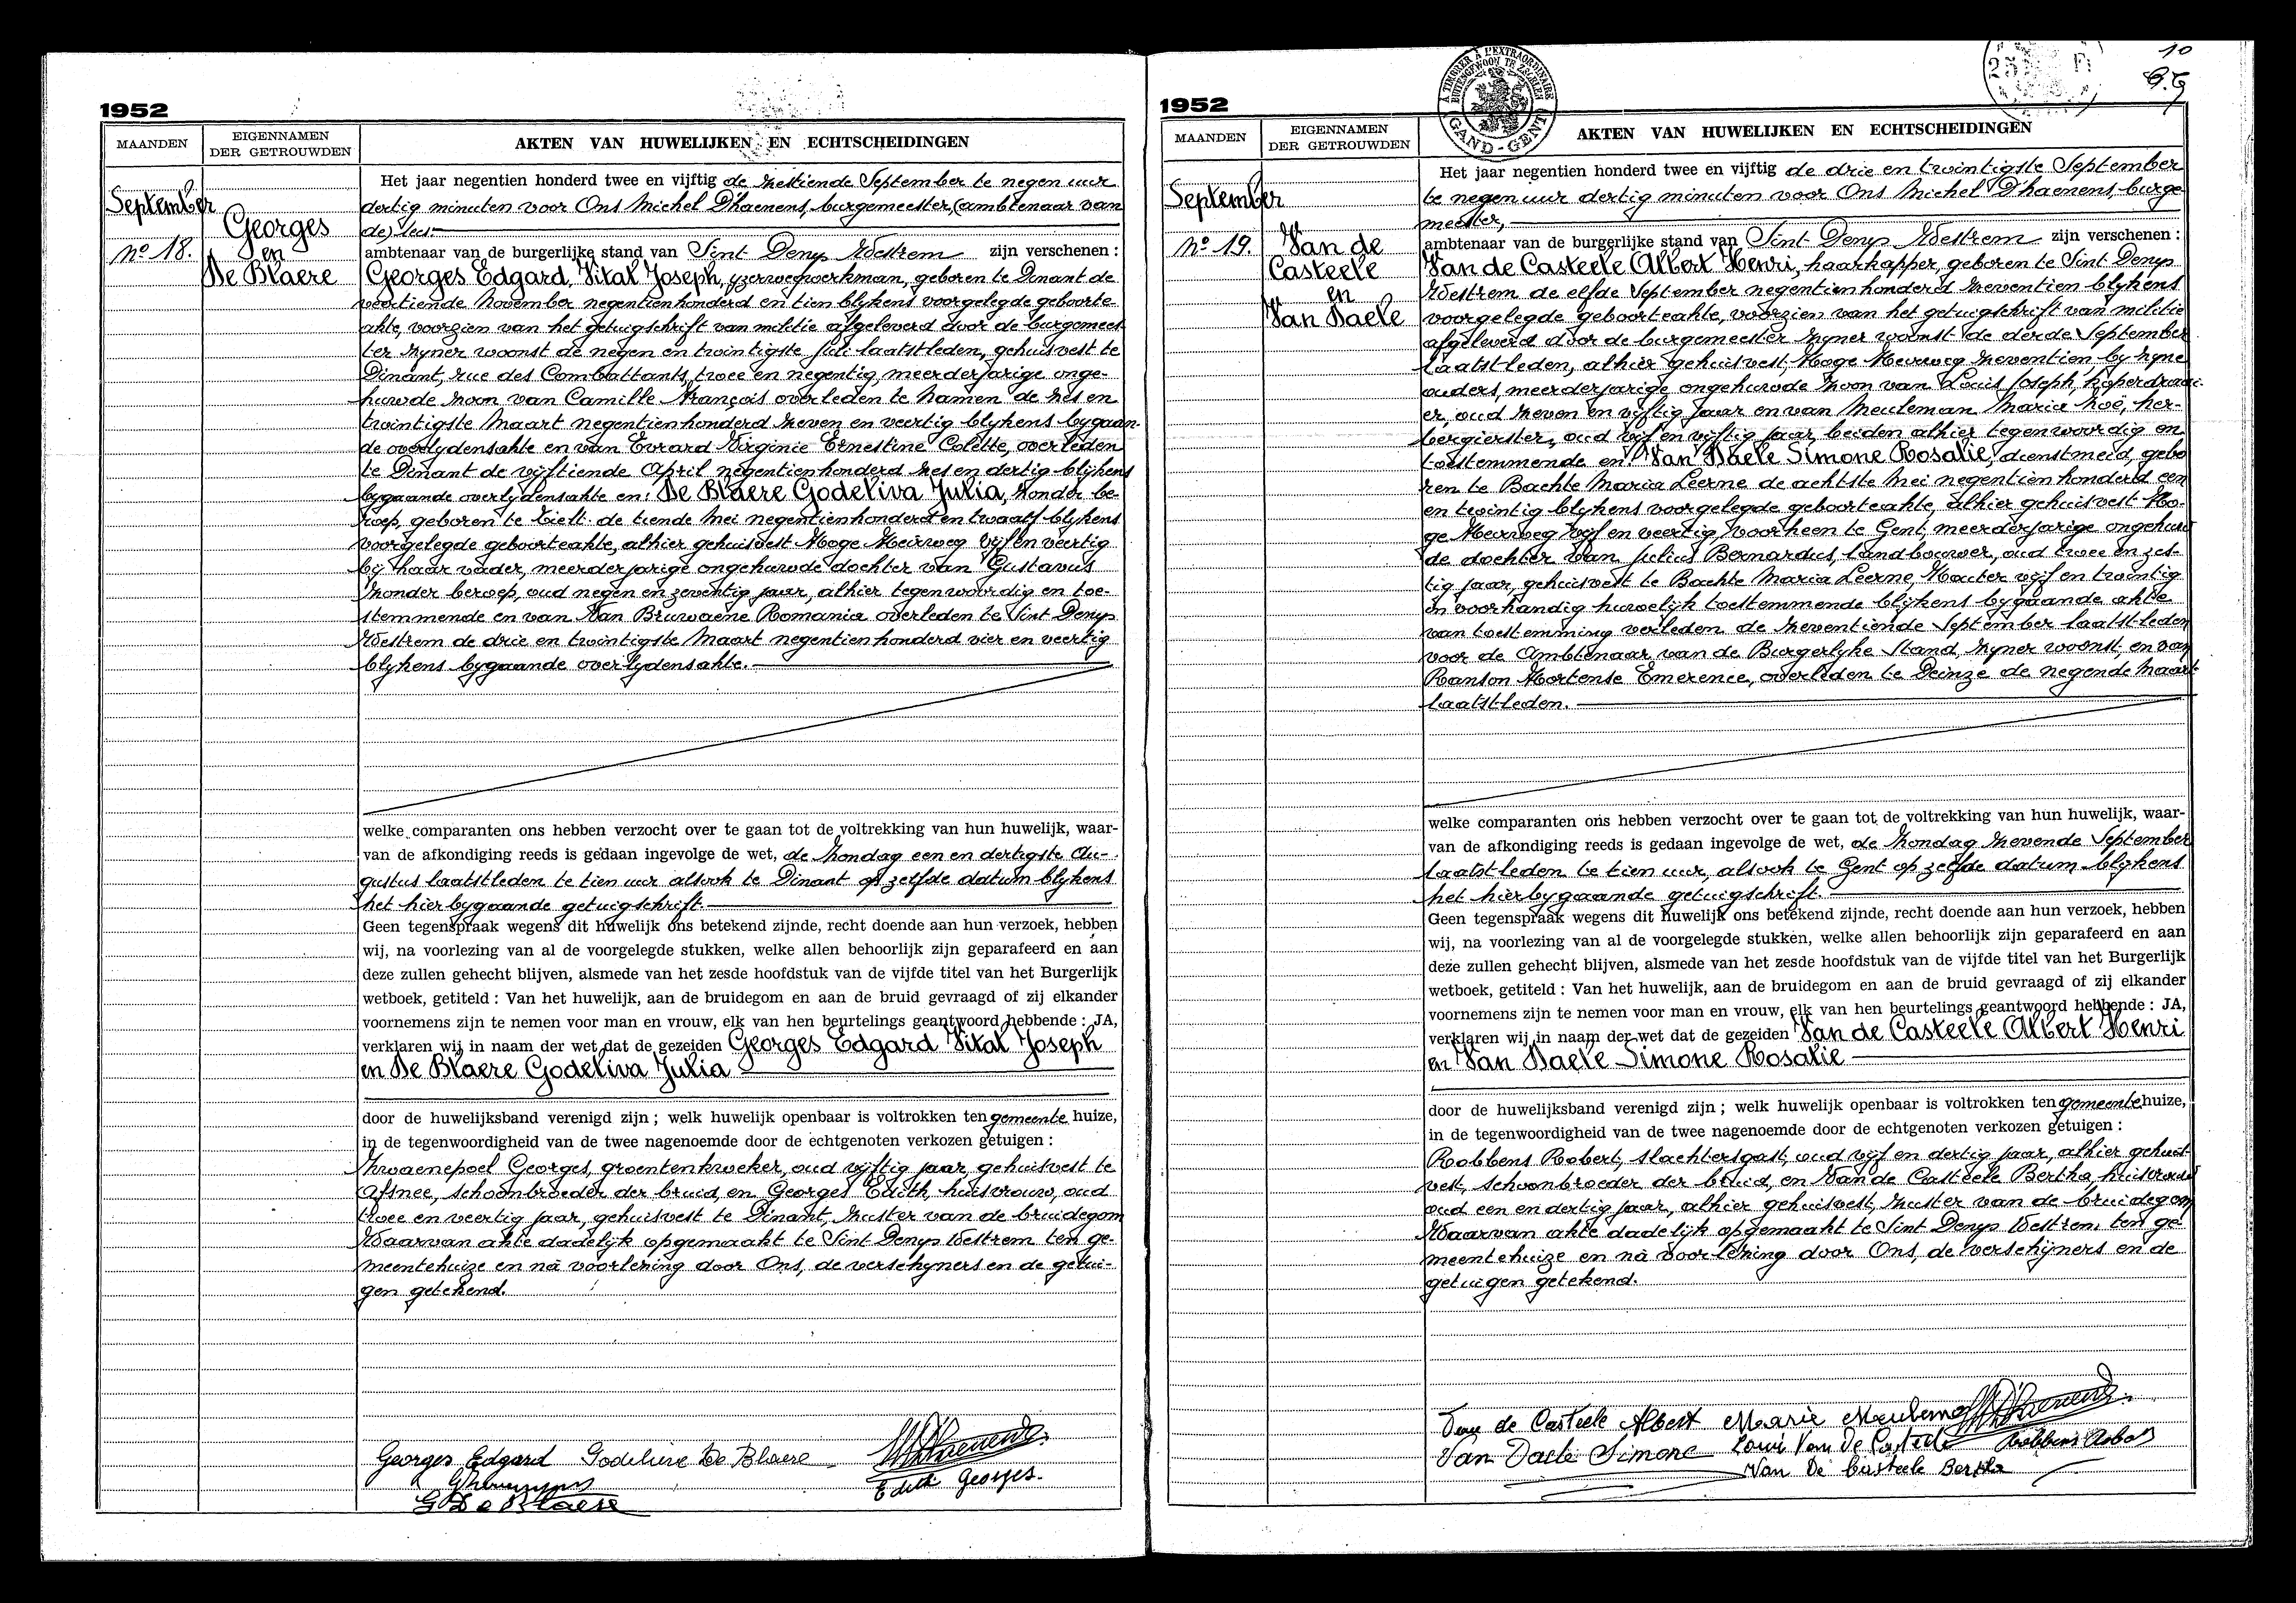 1952
MAANDEN
EIGENNAMEN
DER GETROUWDEN
AKTEN VAN HUWELIJKEN EN ECHTSCHEIDINGEN
September
nº 18.
Georges
en
De Blaere
Het jaar negentien honderd twee en vijftig de zestiende September te negen uur
dertig minuten voor Ons Michel Dhaenens, burgemeester, (ambtenaar van
de)
ambtenaar van de burgerlijke stand van Sint Denys Westrem zijn verschenen :
Georges Edgard, Vital Joseph, yzerwegwerkman, geboren te Dinant de
veertiende November negentienhonderd en tien blykens voorgelegde geboorte
akte, voorzien van het getuigschrift van militie afgeleverd door de burgemees
ter zyner woonst de negen en twintigste Juli laatstleden, gehuisvest te
Dinant, rue des Combattants, twee en negentig, meerderjarige onge-
huwde zoon van Camille François overleden te Namen de zes en
twintigste Maart negentienhonderd zeven en veertig blykens bygaan-
de overlydensakte en van Evrard Virginie Ernestine Colette, overleden
te Dinant de vijftiende April negentienhonderd zes en dertig blijkens
bygaande overlydensakte en: De Blaere Godeliva Julia, zonder be-
roep, geboren te Tielt de tiende Mei negentienhonderd en twaalf blykens
voorgelegde geboorteakte, alhier gehuisvest Hoge Heirweg vijf en veertig
bij haar vader, meerderjarige ongehuwde dochter van Gustavus
zonder beroep, oud negen en zeventig jaar, alhier tegenwoordig en toe-
stemmende en van Van Bruwaene Romania overleden te Sint Denys
Westrem de drie en twintigste Maart negentienhonderd vier en veertig
blykens bygaande overlydensakte.
welke comparanten ons hebben verzocht over te gaan tot de voltrekking van hun huwelijk, waar-
van de afkondiging reeds is gedaan ingevolge de wet, de Zondag een en dertigste Au-
gustus laatstleden te tien uur alsook te Dinant op zelfde datum blykens
het hierbygaande getuigschrift.
Geen tegenspraak wegens dit huwelijk ons betekend zijnde, recht doende aan hun verzoek, hebben
wij, na voorlezing van al de voorgelegde stukken, welke allen behoorlijk zijn geparafeerd en aan
deze zullen gehecht blijven, alsmede van het zesde hoofdstuk van de vijfde titel van het Burgerlijk
wetboek, getiteld : Van het huwelijk, aan de bruidegom en aan de bruid gevraagd of zij elkander
voornemens zijn te nemen voor man en vrouw, elk van hen beurtelings geantwoord hebbende : JA,
verklaren wij in naam der wet dat de gezeiden Georges Edgard Vital Joseph
en De Blaere Godeliva Julia
door de huwelijksband verenigd zijn ; welk huwelijk openbaar is voltrokken ten gemeente huize,
in de tegenwoordigheid van de twee nagenoemde door de echtgenoten verkozen getuigen :
Zwaenepoel Georges, groentenkweker, oud vijftig jaar, gehuisvest te
Afsnee, schoonbroeder der bruid, en Georges Edith, huisvrouw, oud
twee en veertig jaar, gehuisvest te Dinant, zuster van de bruidegom
Waarvan akte dadelijk opgemaakt te Sint Denys Westrem ten ge-
meentehuize en na voorlezing door Ons, de verschyners en de getui-
gen getekend.
Georges Edgard Godelieve De Blaere
Edith Georges.
G De Blaere
1952
A TIMBRER A L'EXTRAORDINAIRE
BUITENGEWOON TE ZEGELEN
GAND-GENT
10
MAANDEN
EIGENNAMEN
DER GETROUWDEN
AKTEN VAN HUWELIJKEN EN ECHTSCHEIDINGEN
September
Nº 19.
Van de
Casteele
en
Van Daele
Het jaar negentien honderd twee en vijftig de drie en twintigste September
te negen uur dertig minuten voor Ons Michel Dhaenens, burge
meester,
ambtenaar van de burgerlijke stand van Sint Denys Westrem zijn verschenen :
Van de Casteele Albert Henri, haarkapper, geboren te Sint Denys
Westrem de elfde September negentienhonderd zeventien blykens
voorgelegde geboorteakte, voorzien van het getuigschrift van militie
afgeleverd door de burgemeester zyner woonst de derde September
laatstleden, alhier gehuisvest, Hoge Heirweg zeventien, by zyne
ouders, meerderjarige ongehuwde zoon van Louis Joseph, koperdraai-
er, oud zeven en vijftig jaar en van Meuleman Maria Zoë, her-
bergierster, oud vijf en vijftig jaar, beiden alhier tegenwoordig en
toestemmende en: Van Daele Simone Rosalie, dienstmeid, gebo
ren te Bachte Maria Leerne de achtste Mei negentienhonderd een
en twintig blykens voorgelegde geboorteakte, alhier gehuisvest Ho-
ge Heirweg vijf en veertig, voorheen te Gent, meerderjarige ongehuw
de dochter van Julius Bernardus, landbouwer, oud twee en zes-
tig jaar, gehuisvest te Bachte Maria Leerne, Houter vijf en twintig
in voorhandig huwelijk toestemmende blijkens bygaande akte
van toestemming verleden de zeventiende September laatstleden
voor de Ambtenaar van de Burgerlyke Stand, zyner woonst, en van
Ranson Hortense Emerence, overleden te Deinze de negende Maart
laatstleden.
welke comparanten ons hebben verzocht over te gaan tot de voltrekking van hun huwelijk, waar-
van de afkondiging reeds is gedaan ingevolge de wet, de Zondag zevende September
laatstleden te tien uur, alsook te Gent op zelfde datum blykens
het hierbygaande getuigschrift.
Geen tegenspraak wegens dit huwelijk ons betekend zijnde, recht doende aan hun verzoek, hebben
wij, na voorlezing van al de voorgelegde stukken, welke allen behoorlijk zijn geparafeerd en aan
deze zullen gehecht blijven, alsmede van het zesde hoofdstuk van de vijfde titel van het Burgerlijk
wetboek, getiteld : Van het huwelijk, aan de bruidegom en aan de bruid gevraagd of zij elkander
voornemens zijn te nemen voor man en vrouw, elk van hen beurtelings geantwoord hebbende : JA,
verklaren wij in naam der wet dat de gezeiden Van de Casteele Albert Henri
en Van Daele Simone Rosalie
door de huwelijksband verenigd zijn ; welk huwelijk openbaar is voltrokken ten gemeente huize,
in de tegenwoordigheid van de twee nagenoemde door de echtgenoten verkozen getuigen :
Robbens Robert, slachtersgast, oud vijf en dertig jaar, alhier gehuis
vest, schoonbroeder der bruid, en Van de Casteele Bertha, huisvrouw
oud een en dertig jaar, alhier gehuisvest, zuster van de bruidegom
Waarvan akte dadelijk opgemaakt te Sint Denys Westrem, ten ge
meentehuize en na voorlezing door Ons, de verschijners en de
getuigen getekend.
Van de Casteele Albert Marie Meuleman
Van Daele Simone Louis Van De Casteele Robbens Robert
Van De Casteele Bertha